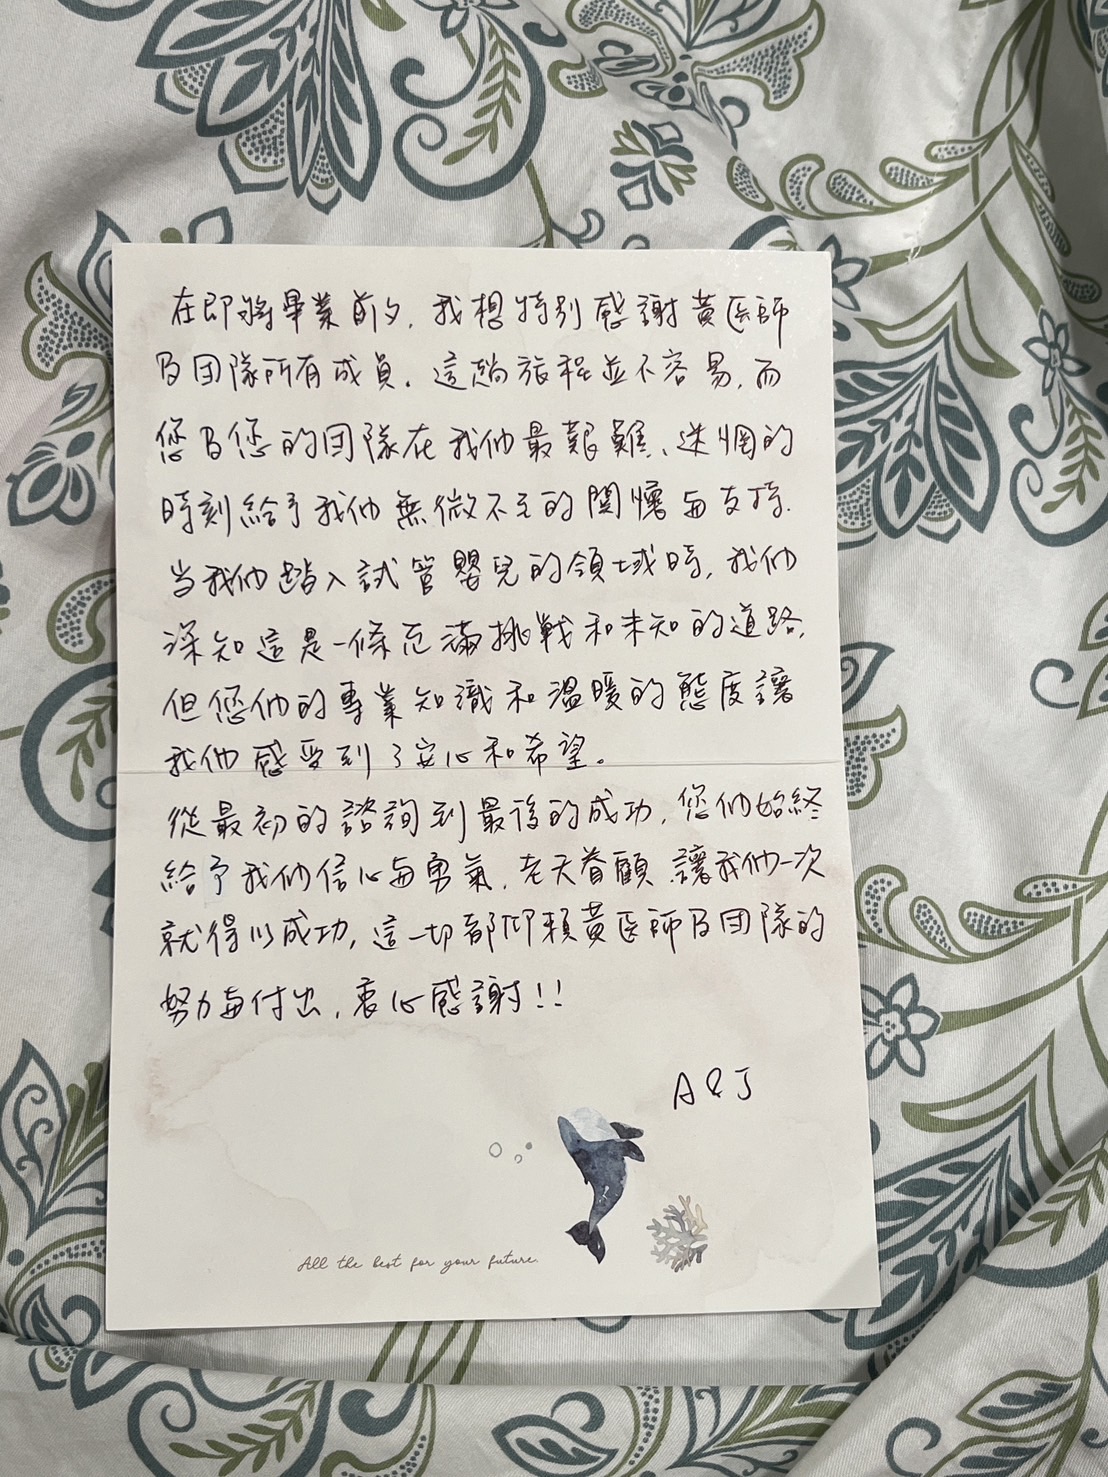 在即將畢業前夕，我想特別感謝黃医師
及团隊所有成員。這趟旅程並不容易，而
您及您的团隊在我們最艱難、迷惘的
時刻給予我們無微不至的関懷与支持.
当我們踏入試管嬰兒的領域時，我們
深知這是一條充滿挑戰和未知的道路，
但您們的專業知識和溫暖的態度讓
我們感受到了安心和希望。
從最初的諮詢到最後的成功，您們始終
給予我們信心与勇氣，老天眷顧 讓我們一次
就得以成功，這一切都仰賴黃医師及团隊的
努力与付出，衷心感謝！！
A & J
All the best for your future.